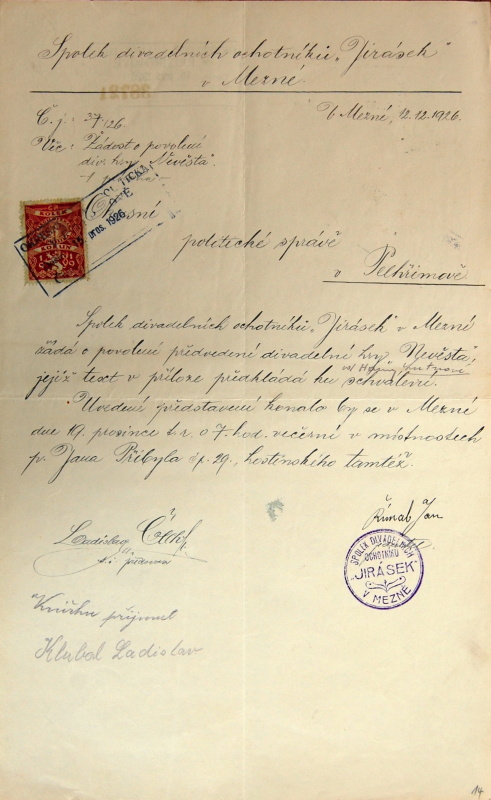 Spolek divadelních ochotníků „Jirásek“
v Mezné
V Mezné, 12.12.1926.
Č. j.: 37/26.
Věc: Žádost o povolení
div. hry „Nevěsta“.
KOLEK
KORUN
1926
politické správě
v Pelhřimově
Spolek divadelních ochotníků „Jirásek“ v Mezné
žádá o povolení předvedení divadelní hry „Nevěsta“,
od
jejíž text v příloze předkládá ku schválení.
Uvedené představení konalo by se v Mezné
dne 19. prosince t.r. o 7 hod. večerní v místnostech
p. Jana Přibyla čp. 29., hostinského tamtéž.
Jan
Ladislav
SPOLEK DIVADELNÍCH
OCHOTNÍKŮ
"JIRÁSEK"
V MEZNÉ
Knížku přijmul
Klubal Ladislav
14